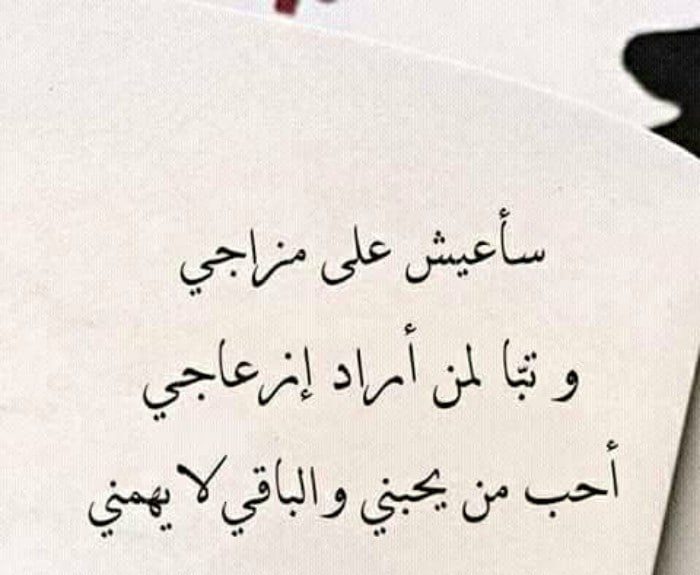 سأعيش على مزاجي
و تبّا لمن أراد إنزعاجي
أحب من يحبني والباقي لا يهمني